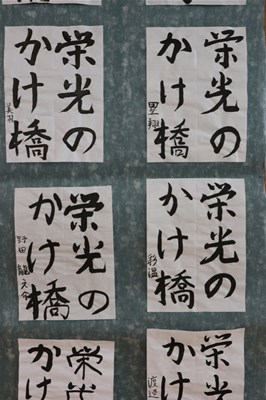 栄光の
かけ橋
美羽
栄光の
かけ橋
里翔
栄光の
かけ橋
野田
栄光の
かけ橋
彩温
栄光
かけ
栄光
かけ
渡辺